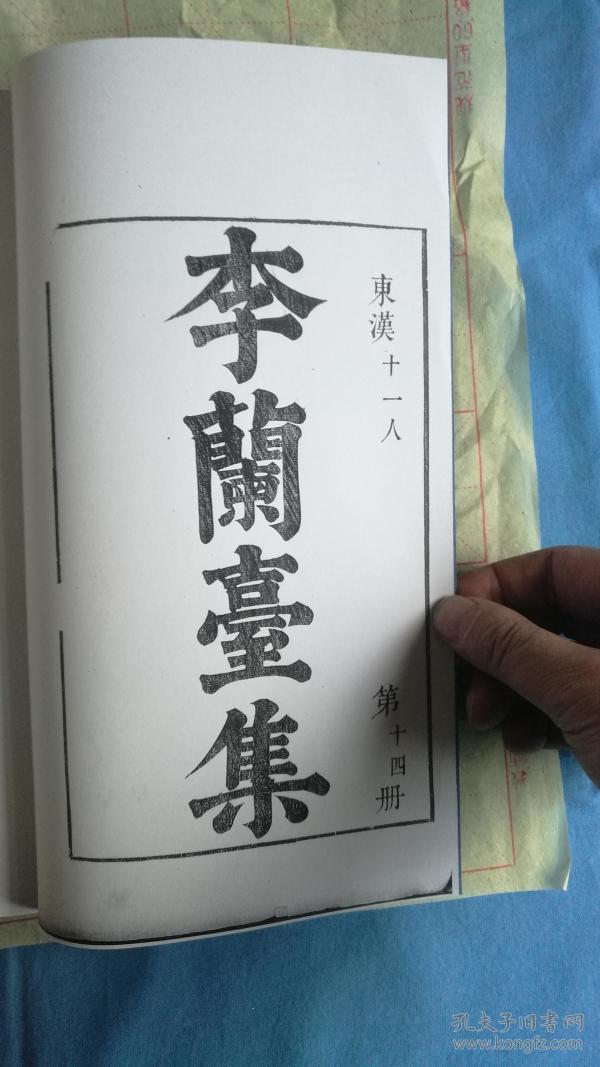 東漢十一人
第十四册
李蘭臺集
孔夫子旧书网
www.kongfz.com